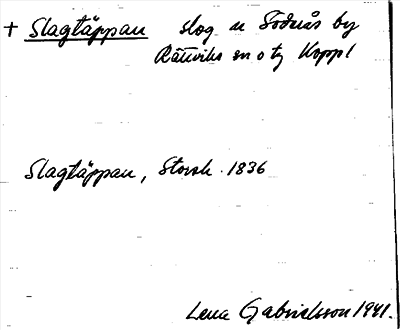 + Slagtäppan skog n Sodnås by
Rättviks sn o tg Koppl
Slagtäppan, Storsk. 1836
Lena Gabrielsson 1941.